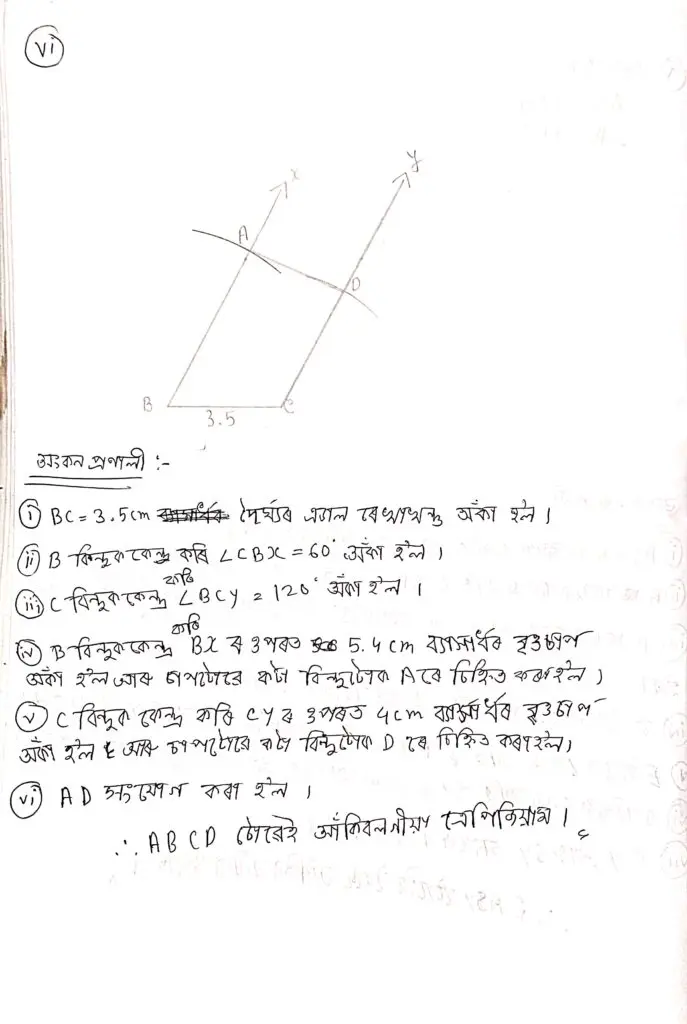 vi
x
y
A
D
B
C
3.5
অংকন প্ৰণালী :-
i BC = 3.5cm দৈৰ্ঘ্যৰ এডাল ৰেখাখন্ড অঁকা হ'ল ।
ii B বিন্দুক কেন্দ্ৰ কৰি ∠CBX = 60° অঁকা হ'ল ।
iii C বিন্দুক কেন্দ্ৰ কৰি ∠BCY = 120° অঁকা হ'ল ।
iv B বিন্দুক কেন্দ্ৰ কৰি BX ৰ ওপৰত 5.4 cm ব্যাসাৰ্ধৰ বৃত্তচাপ
অঁকা হ'ল আৰু চাপটোৱে কটা বিন্দুটোক A ৰে চিহ্নিত কৰা হ'ল ।
v C বিন্দুক কেন্দ্ৰ কৰি CY ৰ ওপৰত 4cm ব্যাসাৰ্ধৰ বৃত্তচাপ
অঁকা হ'ল আৰু চাপটোৱে কটা বিন্দুটোক D ৰে চিহ্নিত কৰা হ'ল।
vi AD সংযোগ কৰা হ'ল ।
∴ ABCD টোৱেই আঁকিবলগীয়া ত্ৰেপিজিয়াম ।